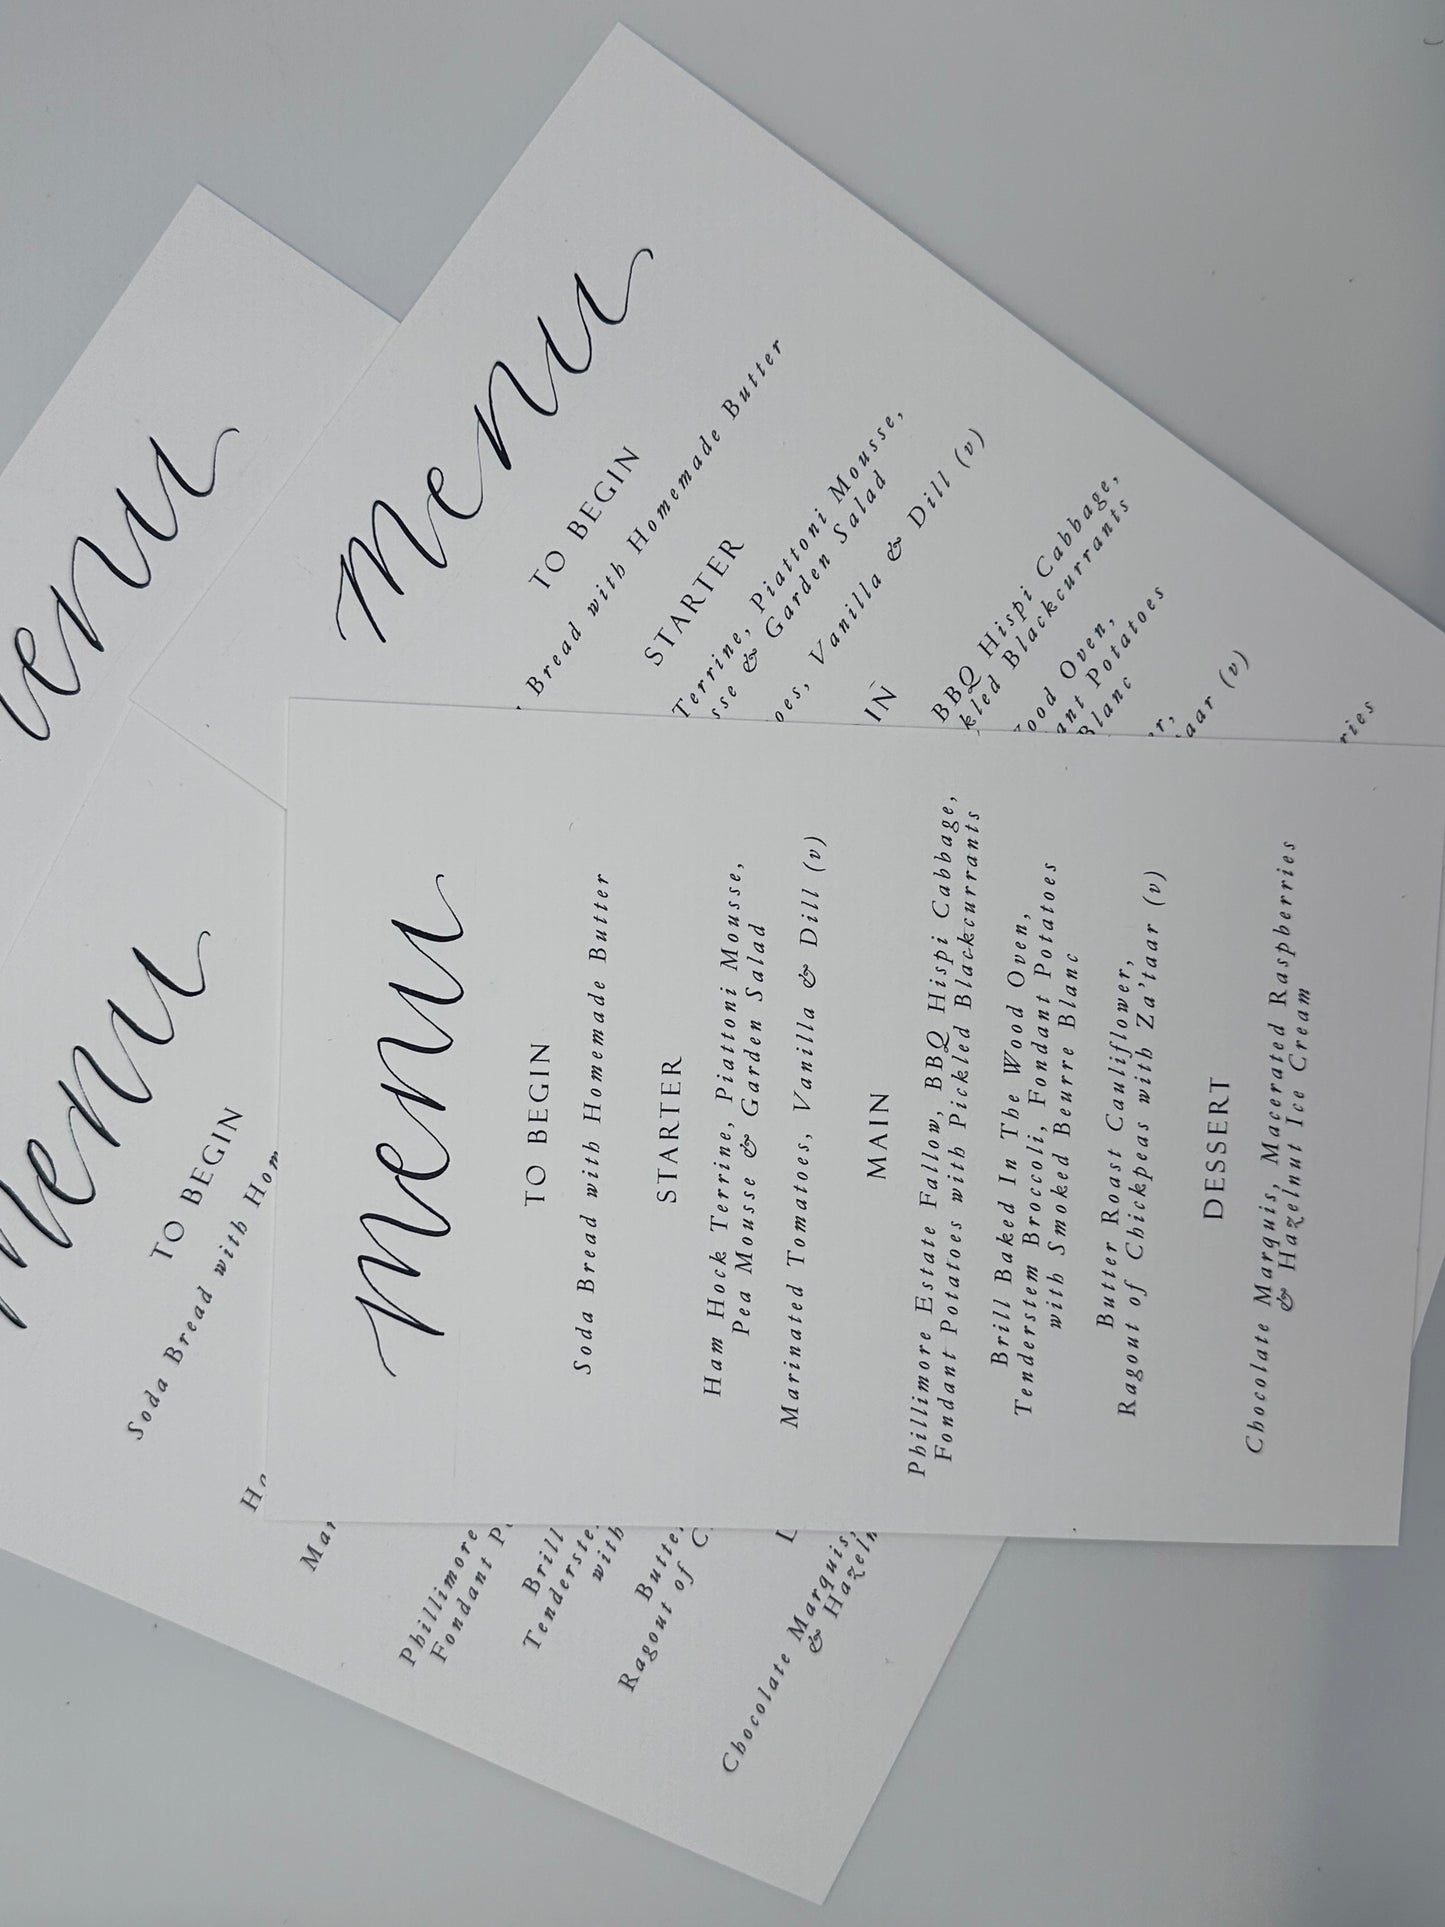 Menu
TO BEGIN
Soda Bread with Homemade Butter
STARTER
Ham Hock Terrine, Piattoni Mousse,
Pea Mousse & Garden Salad
Marinated Tomatoes, Vanilla & Dill (v)
MAIN
Phillimore Estate Fallow, BBQ Hispi Cabbage,
Fondant Potatoes with Pickled Blackcurrants
Brill Baked In The Wood Oven,
Tenderstem Broccoli, Fondant Potatoes
with Smoked Beurre Blanc
Butter Roast Cauliflower,
Ragout of Chickpeas with Za'taar (v)
DESSERT
Chocolate Marquis, Macerated Raspberries
& Hazelnut Ice Cream
Menu
TO BEGIN
Bread with Homemade Butter
STARTER
Terrine, Piattoni Mousse,
& Garden Salad
Vanilla & Dill (v)
BBQ Hispi Cabbage,
Blackcurrants
Oven,
Potatoes
Blanc
(v)
enu
Menu
TO BEGIN
Soda Bread with
Phillimore
Fondant
Brill
with
Ragout of
Chocolate Marquis,
&